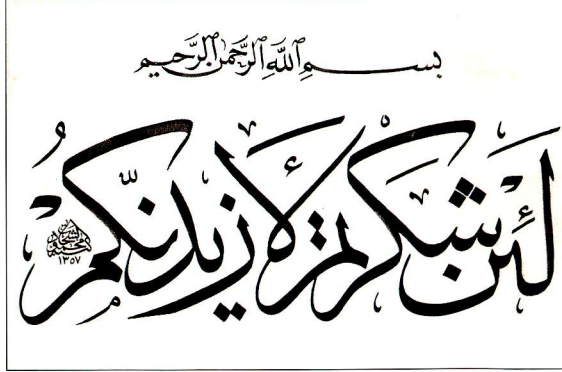 بسم الله الرحمن الرحيم
لئن شكرتم لأزيدنكم
١٣٥٧